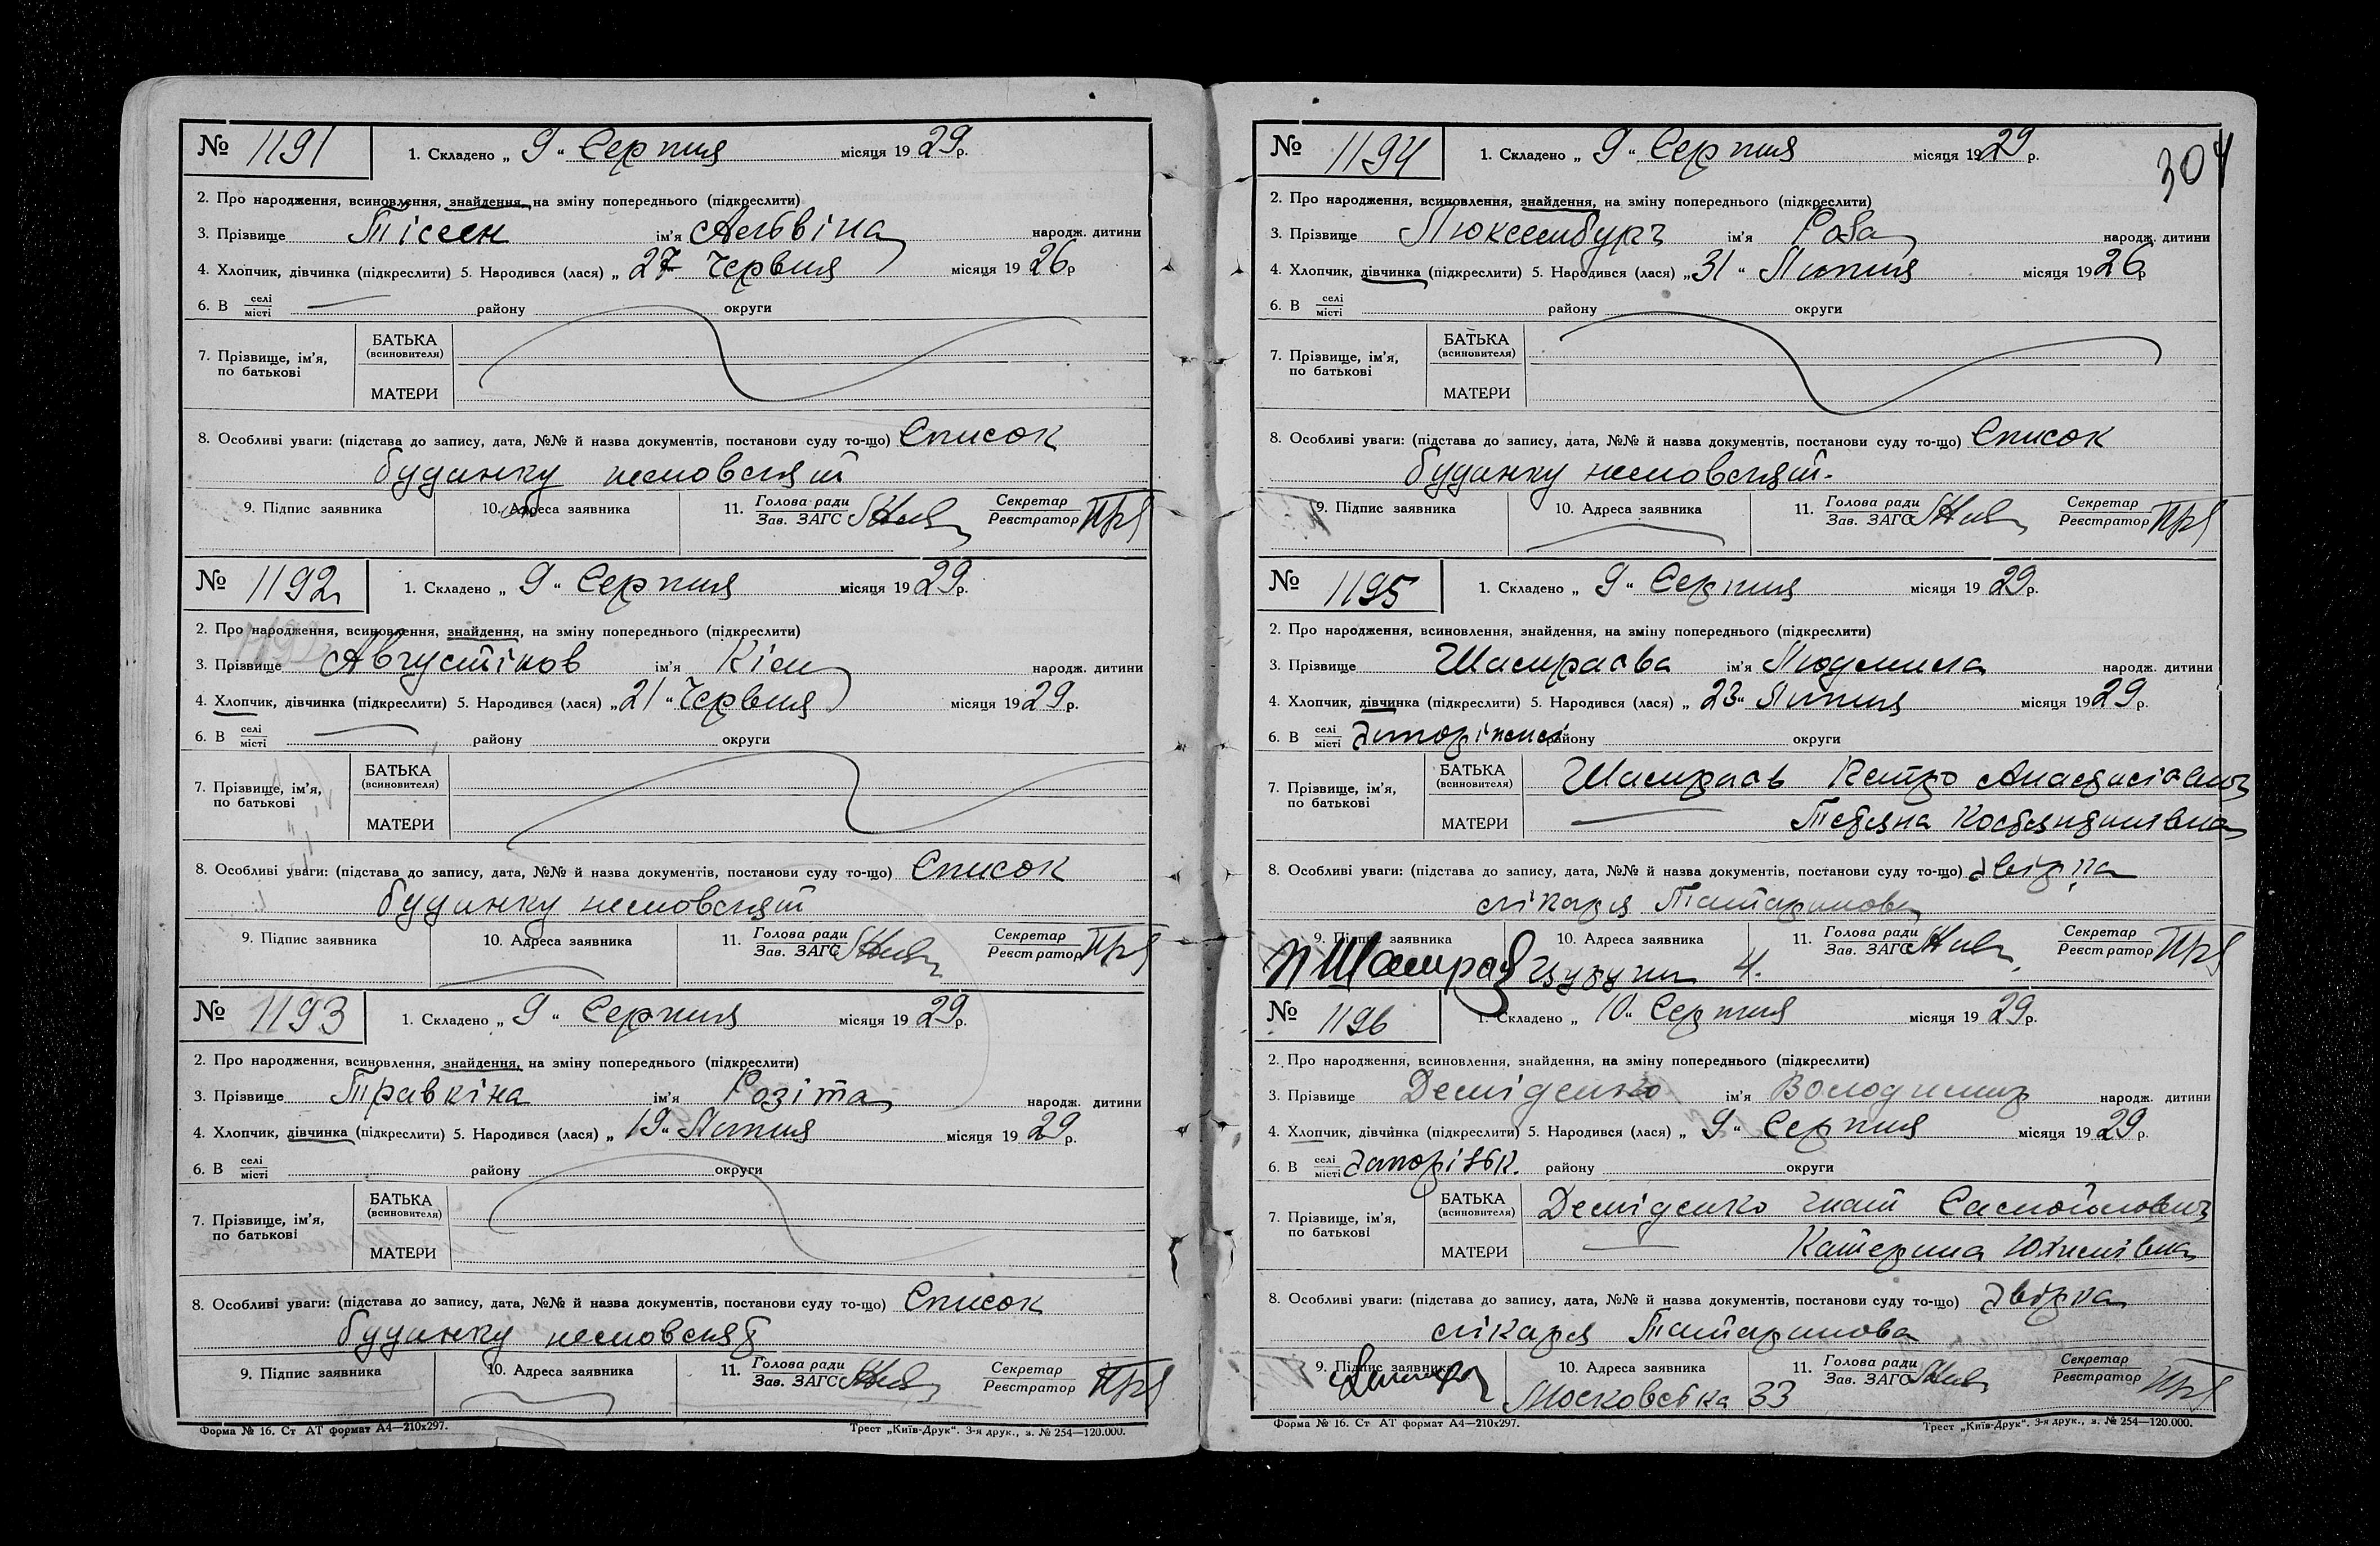 № 1191 1. Складено „ 9 “ Серпня місяця 1929р.
2. Про народження, всиновлення, знайдення, на зміну попереднього (підкреслити)
3. Прізвище Тіссен ім'я Альвіна народж. дитини
4. Хлопчик, дівчинка (підкреслити) 5. Народився (лася) „ 27 Червня місяця 1926р
6. В селі місті району округи
7. Прізвище, ім'я, по батькові
БАТЬКА (всиновителя)
МАТЕРИ
8. Особливі уваги: (підстава до запису, дата, №№ й назва документів, постанови суду то-що) Список
будинку немовлят
9. Підпис заявника 10. Адреса заявника 11. Голова ради Зав. ЗАГС Секретар Реєстратор
№ 1192 1. Складено „ 9 “ Серпня місяця 1929р.
2. Про народження, всиновлення, знайдення, на зміну попереднього (підкреслити)
3. Прізвище Августінов ім'я Кім народж. дитини
4. Хлопчик, дівчинка (підкреслити) 5. Народився (лася) „ 21 “ Червня місяця 1929р.
6. В селі місті району округи
7. Прізвище, ім'я, по батькові
БАТЬКА (всиновителя)
МАТЕРИ
8. Особливі уваги: (підстава до запису, дата, №№ й назва документів, постанови суду то-що) Список
будинку немовлят
9. Підпис заявника 10. Адреса заявника 11. Голова ради Зав. ЗАГС Секретар Реєстратор
№ 1193 1. Складено „ 9 “ Серпня місяця 1929р.
2. Про народження, всиновлення, знайдення, на зміну попереднього (підкреслити)
3. Прізвище Травкіна ім'я Розіта народж. дитини
4. Хлопчик, дівчинка (підкреслити) 5. Народився (лася) „ 19 “ Липня місяця 1929р.
6. В селі місті району округи
7. Прізвище, ім'я, по батькові
БАТЬКА (всиновителя)
МАТЕРИ
8. Особливі уваги: (підстава до запису, дата, №№ й назва документів, постанови суду то-що) Список
будинку немовлят
9. Підпис заявника 10. Адреса заявника 11. Голова ради Зав. ЗАГС Секретар Реєстратор
Форма № 16. Ст АТ формат А4—210х297. Трест „Київ-Друк“. 3-я друк., з. № 254—120.000.
304
№ 1194 1. Складено „ 9 “ Серпня місяця 1929р.
2. Про народження, всиновлення, знайдення, на зміну попереднього (підкреслити)
3. Прізвище Люксембург ім'я Роза народж. дитини
4. Хлопчик, дівчинка (підкреслити) 5. Народився (лася) „ 31 “ Липня місяця 1926р
6. В селі місті району округи
7. Прізвище, ім'я, по батькові
БАТЬКА (всиновителя)
МАТЕРИ
8. Особливі уваги: (підстава до запису, дата, №№ й назва документів, постанови суду то-що) Список
будинку немовлят.
9. Підпис заявника 10. Адреса заявника 11. Голова ради Зав. ЗАГС Секретар Реєстратор
№ 1195 1. Складено „ 9 “ Серпня місяця 1929р.
2. Про народження, всиновлення, знайдення, на зміну попереднього (підкреслити)
3. Прізвище Шамраєва ім'я Людмила народж. дитини
4. Хлопчик, дівчинка (підкреслити) 5. Народився (лася) „ 23 “ Липня місяця 1929р.
6. В селі місті Запоріжжі району округи
7. Прізвище, ім'я, по батькові
БАТЬКА (всиновителя) Шамраєв Петро
МАТЕРИ Тетяна Костянтинівна
8. Особливі уваги: (підстава до запису, дата, №№ й назва документів, постанови суду то-що) Довідка
лікаря Татаринова
9. Підпис заявника 10. Адреса заявника 4. 11. Голова ради Зав. ЗАГС Секретар Реєстратор
№ 1196 1. Складено „ 10 “ Серпня місяця 1929р.
2. Про народження, всиновлення, знайдення, на зміну попереднього (підкреслити)
3. Прізвище Деміденко ім'я Володимир народж. дитини
4. Хлопчик, дівчинка (підкреслити) 5. Народився (лася) „ 9 “ Серпня місяця 1929р.
6. В селі місті району округи
7. Прізвище, ім'я, по батькові
БАТЬКА (всиновителя) Деміденко Гнат Самойлович
МАТЕРИ Катерина Юхимівна
8. Особливі уваги: (підстава до запису, дата, №№ й назва документів, постанови суду то-що) Довідка
лікаря Татаринова
9. Підпис заявника 10. Адреса заявника 11. Голова ради Зав. ЗАГС Секретар Реєстратор
Московська 33
Форма № 16. Ст АТ формат А4—210х297. Трест „Київ-Друк“. 3-я друк., з. № 254—120.000.